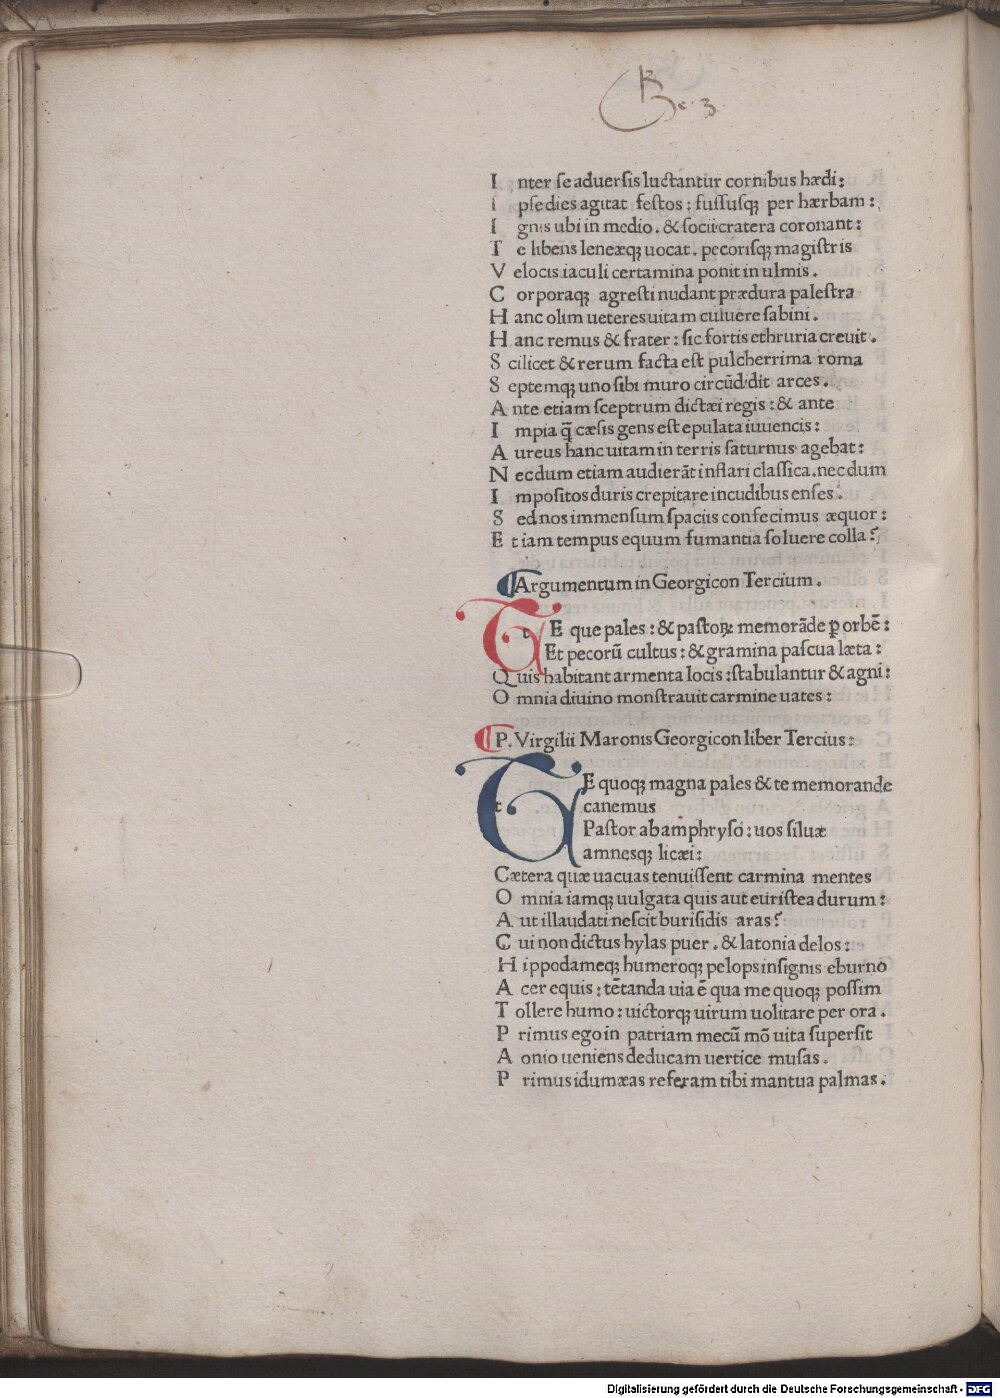 Ge. 3
I nter ſe aduerſis luctantur cornibus hædi:
I pſe dies agitat feſtos: fuſſuſqꝫ per hærbam:
I gnis ubi in medio. & ſocii cratera coronant:
T e libens leneæqꝫ uocat. pecoriſqꝫ magiſtris
V elocis iaculi certamina ponit in ulmis.
C orporaqꝫ agreſti nudant prædura paleſtra
H anc olim ueteres uitam culuere ſabini.
H anc remus & frater: ſic fortis ethruria creuit.
S cilicet & rerum facta eſt pulcherrima roma
S eptemqꝫ uno ſibi muro circūdidit arces.
A nte etiam ſceptrum dictæi regis: & ante
I mpia q̄ cæſis gens eſt epulata iuuencis:
A ureus hanc uitam in terris ſaturnus agebat:
N ecdum etiam audierāt inflari claſſica. necdum
I mpoſitos duris crepitare incudibus enſes.
S ed nos immenſum ſpaciis confecimus æquor:
E t iam tempus equum fumantia ſoluere colla?
¶Argumentum in Georgicon Tercium.
t E que pales: & paſtoꝝ memorāde ꝑ orbē:
Et pecorū cultus: & gramina paſcua læta:
Q uis habitant armenta locis: ſtabulantur & agni:
O mnia diuino monſtrauit carmine uates:
¶P. Virgilii Maronis Georgicon liber Tercius:
t E quoqꝫ magna pales & te memorande
canemus
Paſtor ab amphryſo: uos ſiluæ
amneſqꝫ licæi:
Cætera quæ uacuas tenuiſſent carmina mentes
O mnia iamqꝫ uulgata quis aut euriſtea durum:
A ut illaudati neſcit buriſidis aras?
C ui non dictus hylas puer. & latonia delos:
H ippodameqꝫ humeroqꝫ pelops inſignis eburno
A cer equis: tētanda uia ē qua me quoqꝫ poſſim
T ollere humo: uictorqꝫ uirum uolitare per ora.
P rimus ego in patriam mecū mō uita ſuperſit
A onio ueniens deducam uertice muſas.
P rimus idumæas referam tibi mantua palmas.
Digitalisierung gefördert durch die Deutsche Forschungsgemeinschaft - DFG